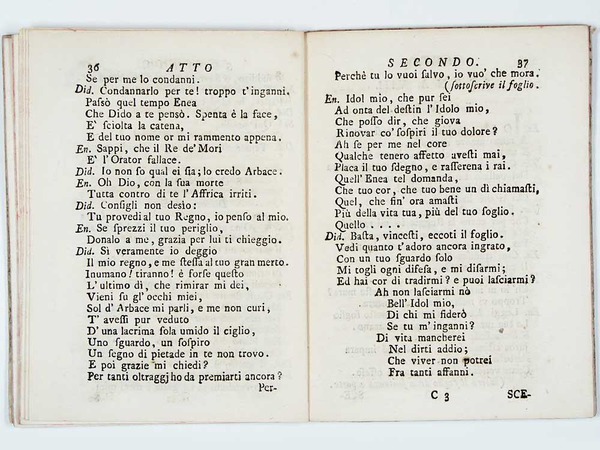 36 ATTO
Se per me lo condanni.
Did. Condannarlo per te! troppo t'inganni.
Paſsò quel tempo Enea
Che Dido a te pensò. Spenta è la face,
E' ſciolta la catena,
E del tuo nome or mi rammento appena.
En. Sappi, che il Re de' Mori
E' l'Orator fallace.
Did. Io non ſo qual ei ſia; lo credo Arbace.
En. Oh Dio, con la sua morte
Tutta contro di te l'Affrica irriti.
Did. Conſigli non deſio:
Tu provedi al tuo Regno, io penſo al mio.
En. Se ſprezzi il tuo periglio,
Donalo a me, grazia per lui ti chieggio.
Did. Sì veramente io deggio
Il mio regno, e me ſteſſa al tuo gran merto.
Inumano! tiranno! è forſe queſto
L'ultimo dì, che rimirar mi dei,
Vieni ſu gl'occhi miei,
Sol d'Arbace mi parli, e me non curi,
T'aveſſi pur veduto
D'una lacrima ſola umido il ciglio,
Uno ſguardo, un ſoſpiro
Un ſegno di pietade in te non trovo.
E poi grazie mi chiedi?
Per tanti oltraggj ho da premiarti ancora?
Per-
SECONDO. 37
Perchè tu lo vuoi ſalvo, io vuo' che mora.
(ſottoſcrive il foglio.
En. Idol mio, che pur ſei
Ad onta del deſtin l'Idolo mio,
Che poſſo dir, che giova
Rinovar co' ſoſpiri il tuo dolore?
Ah ſe per me nel core
Qualche tenero affetto aveſti mai,
Placa il tuo ſdegno, e raſſerena i rai.
Quell' Enea tel domanda,
Che tuo cor, che tuo bene un dì chiamaſti,
Quel, che fin' ora amaſti
Più della vita tua, più del tuo ſoglio.
Quello . . . .
Did. Baſta, vinceſti, eccoti il foglio.
Vedi quanto t'adoro ancora ingrato,
Con un tuo ſguardo ſolo
Mi togli ogni difeſa, e mi diſarmi;
Ed hai cor di tradirmi? e puoi laſciarmi?
Ah non laſciarmi nò
Bell' Idol mio,
Di chi mi fiderò
Se tu m'inganni?
Di vita mancherei
Nel dirti addio;
Che viver non potrei
Fra tanti affanni.
C 3 SCE-